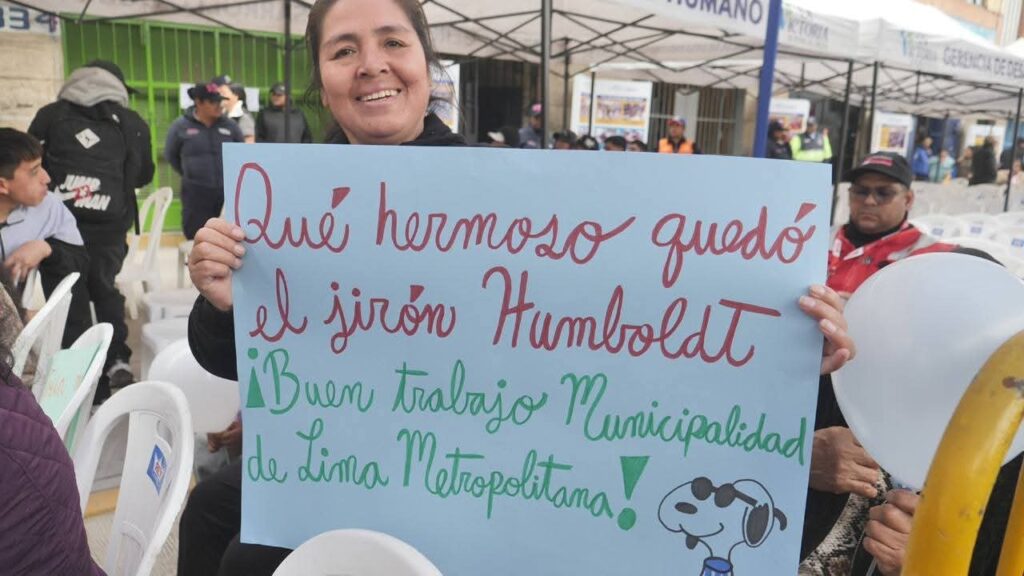 834
HUMANO
GERENCIA DE DES
JUMP
MAN
Qué hermoso quedó
el jirón Humboldt
¡Buen trabajo Municipalidad
de Lima Metropolitana!